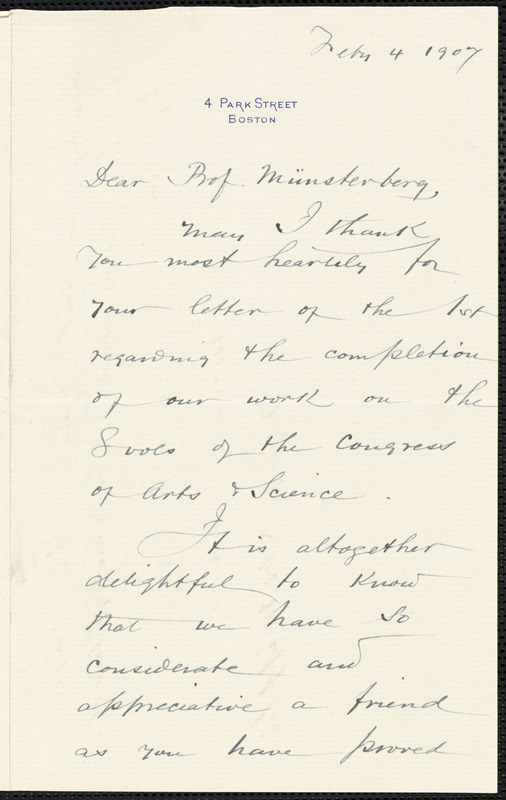 Feby 4 1907
4 PARK STREET
BOSTON
Dear Prof. Münsterberg,
May I thank
you most heartily for
your letter of the 1st
regarding the completion
of our work on the
8 vols of the Congress
of Arts & Science.
It is altogether
delightful to know
that we have so
considerate and
appreciative a friend
as you have proved